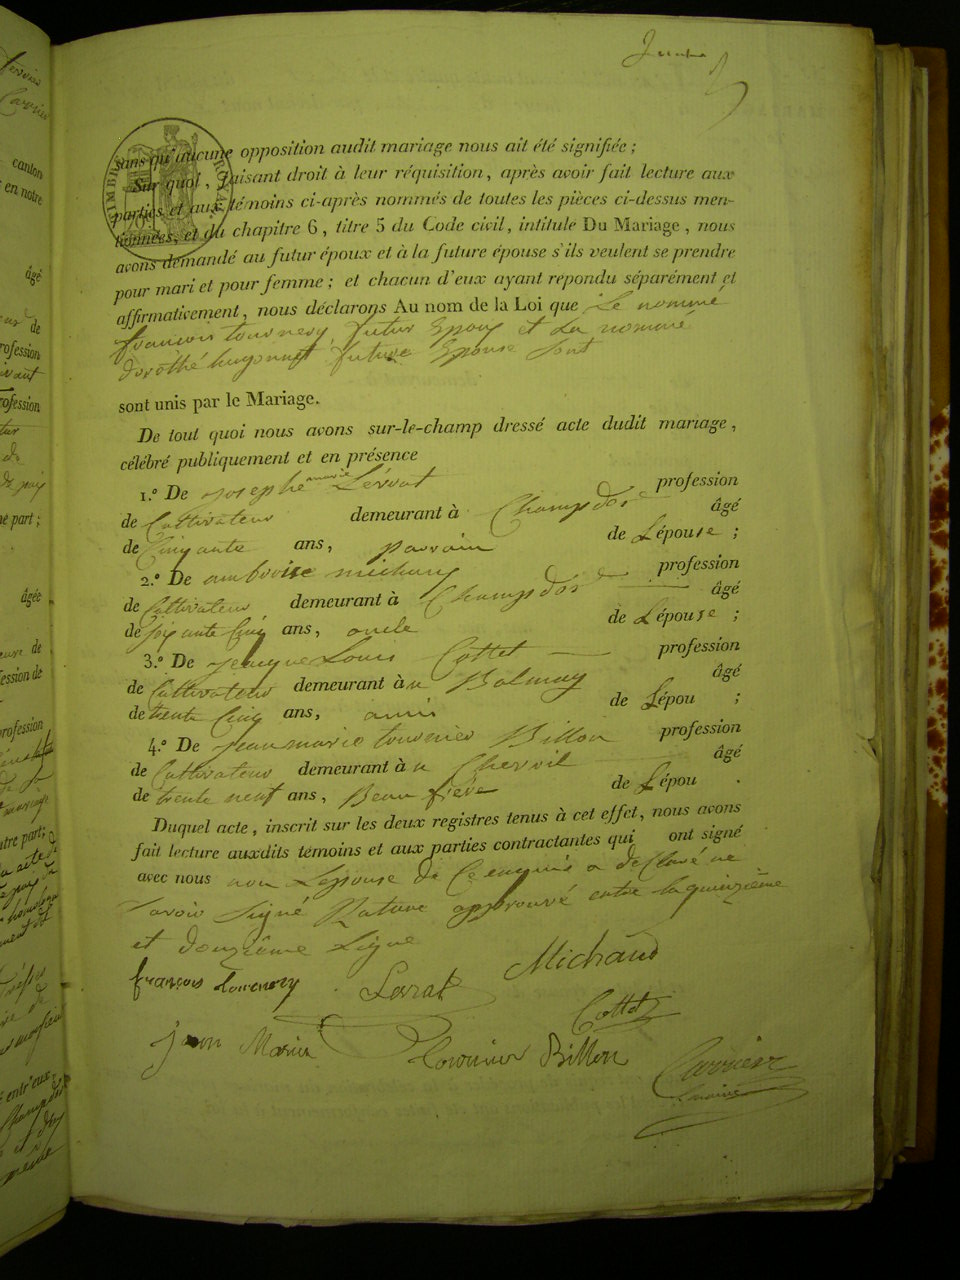 TIMBRE ROYAL
70
sans qu'aucune opposition audit mariage nous ait été signifiée ;
Sur quoi, faisant droit à leur réquisition, après avoir fait lecture aux
parties et aux témoins ci-après nommés de toutes les pièces ci-dessus men-
tionnées, et du chapitre 6, titre 5 du Code civil, intitulé Du Mariage, nous
avons demandé au futur époux et à la future épouse s'ils veulent se prendre
pour mari et pour femme ; et chacun d'eux ayant répondu séparément et
affirmativement, nous déclarons Au nom de la Loi que Le nommé
françois tournery futur Epoux et La nommé
dorothé huyonnet future Epouse sont
sont unis par le Mariage.
De tout quoi nous avons sur-le-champ dressé acte dudit mariage,
célébré publiquement et en présence
1.° De josephe marie Lérvat profession
de Cultivateur demeurant à Champdor âgé
de Cinquante ans, parrain de Lépouse ;
2.° De ambroise michaux profession
de Cultivateur demeurant à Champdor âgé
de soixante Cinq ans, oncle de Lépouse ;
3.° De jacque Louis Cottet profession
de Cultivateur demeurant à Balmay âgé
de trente Cinq ans, amis de Lépou ;
4.° De jean marie tournier Billon profession
de Cultivateur demeurant à Chevril âgé
de trente neuf ans, Beau frère de Lépou .
Duquel acte, inscrit sur les deux registres tenus à cet effet, nous avons
fait lecture auxdits témoins et aux parties contractantes qui ont signé
avec nous non Lepouse de Ce enquis a déClaré ne
savoir Signé Rature approuvé entre la quinzième
et douzième Ligne
françois tournery Lervat Michaud
Cottet
jean Marie tournier Billon
Carrier
maire